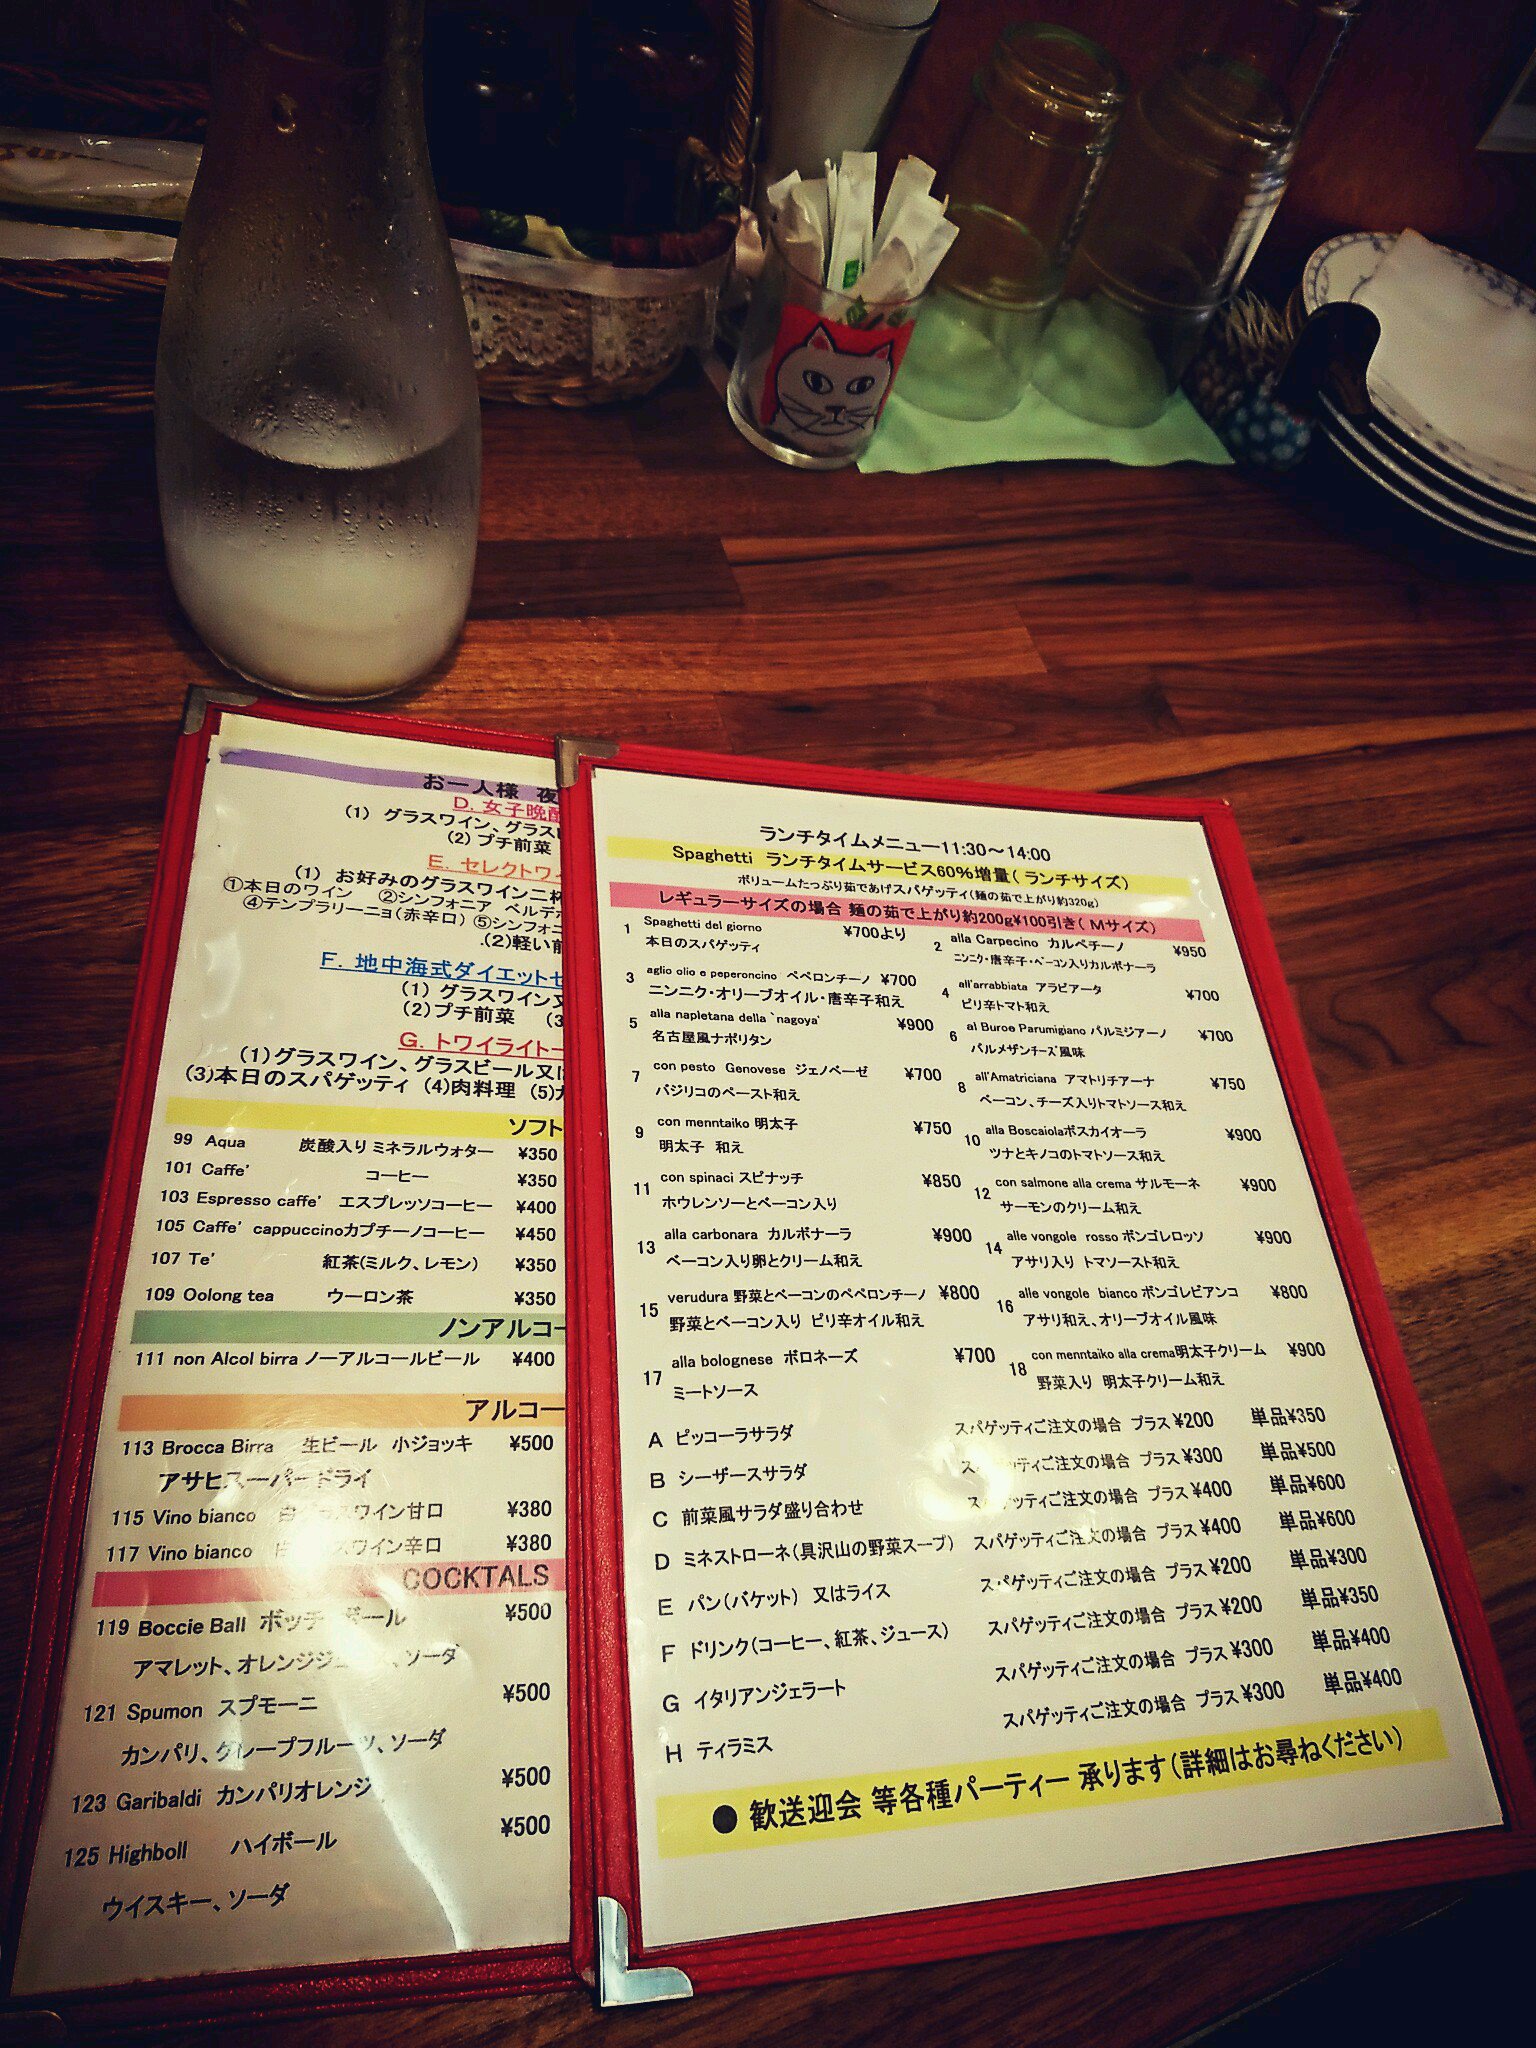 お一人様 夜
D. 女子晩酌
(1) グラスワイン、グラスビ
(2) プチ前菜
E. セレクトワイ
(1) お好みのグラスワイン二杯
①本日のワイン ②シンフォニア ベルデホ
④テンプラリーニョ(赤辛口) ⑤シンフォニ
.(2)軽い前
F. 地中海式ダイエットセ
(1) グラスワイン又
(2)プチ前菜 (3
G. トワイライト
(1)グラスワイン、グラスビール又は
(3)本日のスパゲッティ (4)肉料理 (5)
ソフト
99 Aqua 炭酸入り ミネラルウォター ¥350
101 Caffe' コーヒー ¥350
103 Espresso caffe' エスプレッソコーヒー ¥400
105 Caffe' cappuccinoカプチーノコーヒー ¥450
107 Te' 紅茶(ミルク、レモン) ¥350
109 Oolong tea ウーロン茶 ¥350
ノンアルコー
111 non Alcol birra ノーアルコールビール ¥400
アルコー
113 Brocca Birra 生ビール 小ジョッキ ¥500
アサヒスーパードライ
115 Vino bianco 白グラスワイン甘口 ¥380
117 Vino bianco 白グラスワイン辛口 ¥380
COCKTALS
119 Boccie Ball ボッチボール ¥500
アマレット、オレンジジュース、ソーダ
121 Spumon スプモーニ ¥500
カンパリ、グレープフルーツ、ソーダ
123 Garibaldi カンパリオレンジ ¥500
125 Highboll ハイボール ¥500
ウイスキー、ソーダ
ランチタイムメニュー11:30～14:00
Spaghetti ランチタイムサービス60%増量( ランチサイズ)
ボリュームたっぷり茹であげスパゲッティ(麺の茹で上がり約320g)
レギュラーサイズの場合 麺の茹で上がり約200g¥100引き( Mサイズ)
1 Spaghetti del giorno ¥700より
本日のスパゲッティ
2 alla Carpecino カルペチーノ ¥950
ニンニク・唐辛子・ベーコン入りカルボナーラ
3 aglio olio e peperoncino ペペロンチーノ ¥700
ニンニク・オリーブオイル・唐辛子和え
4 all'arrabbiata アラビアータ ¥700
ピリ辛トマト和え
5 alla napletana della `nagoya' ¥900
名古屋風ナポリタン
6 al Buroe Parumigiano パルミジアーノ ¥700
パルメザンチーズ風味
7 con pesto Genovese ジェノベーゼ ¥700
バジリコのペースト和え
8 all'Amatriciana アマトリチアーナ ¥750
ベーコン、チーズ入りトマトソース和え
9 con menntaiko 明太子 ¥750
明太子 和え
10 alla Boscaiolaボスカイオーラ ¥900
ツナとキノコのトマトソース和え
11 con spinaci スピナッチ ¥850
ホウレンソーとベーコン入り
12 con salmone alla crema サルモーネ ¥900
サーモンのクリーム和え
13 alla carbonara カルボナーラ ¥900
ベーコン入り卵とクリーム和え
14 alle vongole rosso ボンゴレロッソ ¥900
アサリ入り トマソースト和え
15 verudura 野菜とベーコンのペペロンチーノ ¥800
野菜とベーコン入り ピリ辛オイル和え
16 alle vongole bianco ボンゴレビアンコ ¥800
アサリ和え、オリーブオイル風味
17 alla bolognese ボロネーズ ¥700
ミートソース
18 con menntaiko alla crema明太子クリーム ¥900
野菜入り 明太子クリーム和え
A ピッコーラサラダ スパゲッティご注文の場合 プラス¥200 単品¥350
B シーザースサラダ スパゲッティご注文の場合 プラス¥300 単品¥500
C 前菜風サラダ盛り合わせ スパゲッティご注文の場合 プラス¥400 単品¥600
D ミネストローネ(具沢山の野菜スープ) スパゲッティご注文の場合 プラス¥400 単品¥600
E パン(バケット) 又はライス スパゲッティご注文の場合 プラス¥200 単品¥300
F ドリンク(コーヒー、紅茶、ジュース) スパゲッティご注文の場合 プラス¥200 単品¥350
G イタリアンジェラート スパゲッティご注文の場合 プラス¥300 単品¥400
H ティラミス スパゲッティご注文の場合 プラス¥300 単品¥400
● 歓送迎会 等各種パーティー 承ります(詳細はお尋ねください)